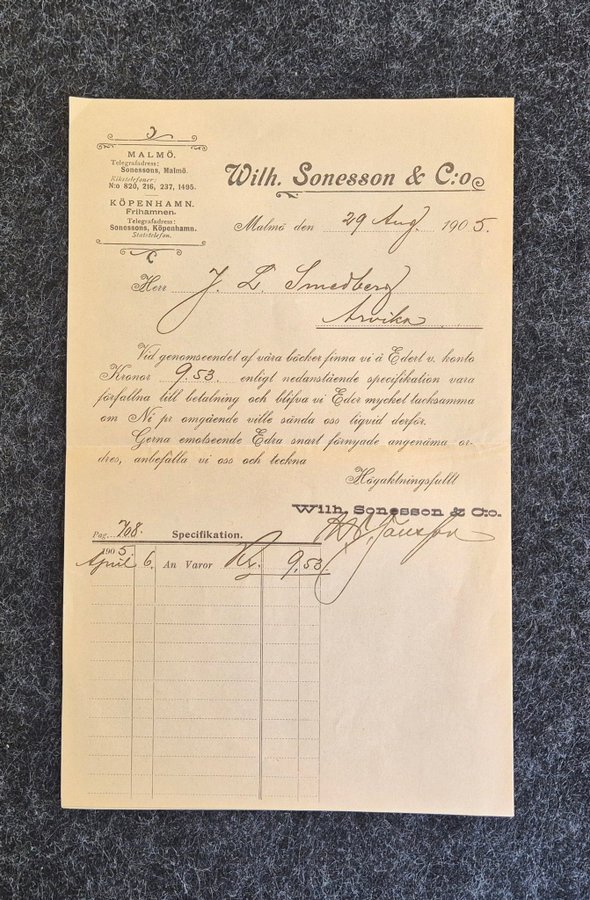 MALMÖ.
Telegrafadress:
Sonessons, Malmö.
Rikstelefoner:
N:o 820, 216, 237, 1495.
KÖPENHAMN.
Frihamnen.
Telegrafadress:
Sonessons, Köpenhamn.
Statstelefon.
Wilh. Sonesson & C:o
Malmö den 29 Aug. 1905.
Herr J. L. Smedberg
Arvika
Vid genomseendet af våra böcker finna vi å Edert v. konto
Kronor 9.53. enligt nedanstående specifikation vara
förfallna till betalning och blifva vi Eder mycket tacksamma
om Ni pr omgående ville sända oss liqvid derför.
Gerna emotseende Edra snart förnyade angenäma or-
dres, anbefalla vi oss och teckna
Högaktningsfullt
Wilh. Sonesson & C:o.
Pag. 708. Specifikation.
1905.
April 6. An Varor Kr. 9.53.